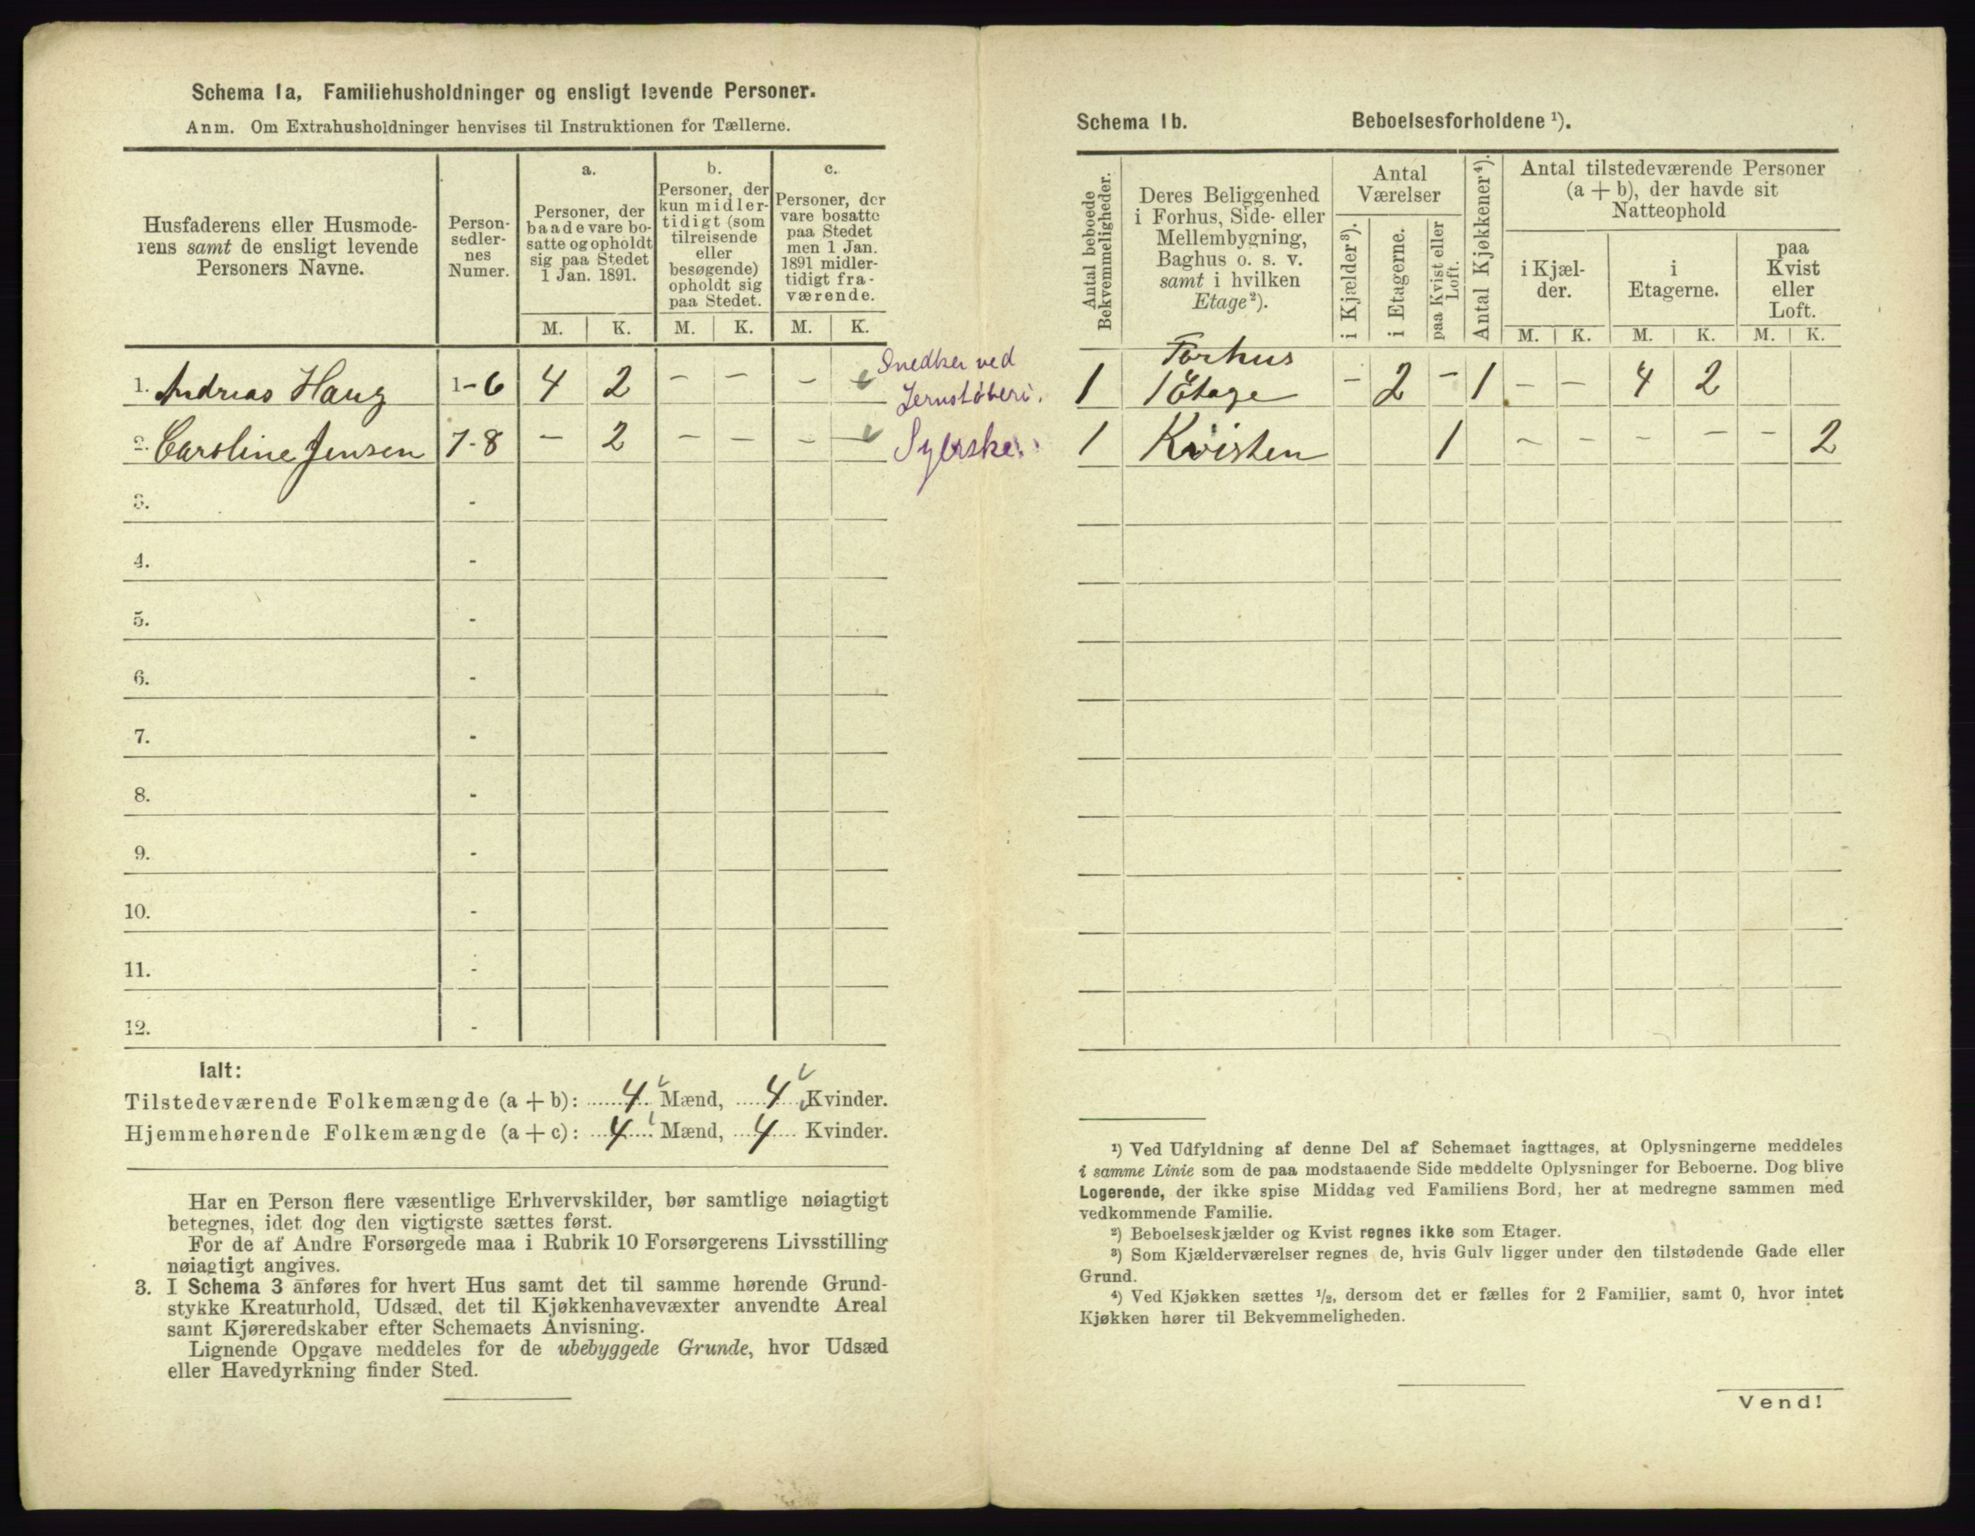 Schema 1a, Familiehusholdninger og ensligt levende Personer.
Anm. Om Extrahusholdninger henvises til Instruktionen for Tællerne.
Husfaderens eller Husmode-
rens samt de ensligt levende
Personers Navne.
Person-
sedler-
nes
Numer.
a.
Personer, der
baade vare bo-
satte og opholdt
sig paa Stedet
1 Jan. 1891.
b.
Personer, der
kun midler-
tidigt (som
tilreisende
eller
besøgende)
opholdt sig
paa Stedet.
c.
Personer, der
vare bosatte
paa Stedet
men 1 Jan.
1891 midler-
tidigt fra-
værende.
M. K. M. K. M. K.
1. Andreas Haug 1-6 4 2 - - - - Snedker ved
Jernstøberi.
2. Caroline Jensen 7-8 - 2 - - - - Syerske.
3. -
4. -
5. -
6. -
7. -
8. -
9. -
10. -
11. -
12. -
Ialt:
Tilstedeværende Folkemængde (a + b): 4 Mænd, 4 Kvinder.
Hjemmehørende Folkemængde (a + c): 4 Mænd, 4 Kvinder.
Har en Person flere væsentlige Erhvervskilder, bør samtlige nøiagtigt
betegnes, idet dog den vigtigste sættes først.
For de af Andre Forsørgede maa i Rubrik 10 Forsørgerens Livsstilling
nøiagtigt angives.
3. I Schema 3 anføres for hvert Hus samt det til samme hørende Grund-
stykke Kreaturhold, Udsæd, det til Kjøkkenhavevæxter anvendte Areal
samt Kjøreredskaber efter Schemaets Anvisning.
Lignende Opgave meddeles for de ubebyggede Grunde, hvor Udsæd
eller Havedyrkning finder Sted.
Schema 1b. Beboelsesforholdene ¹).
Antal beboede
Bekvemmeligheder.
Deres Beliggenhed
i Forhus, Side- eller
Mellembygning,
Baghus o. s. v.
samt i hvilken
Etage²).
Antal
Værelser
i Kjælder³).
i Etagerne.
paa Kvist eller
Loft.
Antal Kjøkkener⁴).
Antal tilstedeværende Personer
(a + b), der havde sit
Natteophold
i Kjæl-
der.
i
Etagerne.
paa
Kvist
eller
Loft.
M. K. M. K. M. K.
Forhus
1 1 Etage - 2 - 1 - - 4 2
1 Kvisten 1 - - - - - 2
¹) Ved Udfyldning af denne Del af Schemaet iagttages, at Oplysningerne meddeles
i samme Linie som de paa modstaaende Side meddelte Oplysninger for Beboerne. Dog blive
Logerende, der ikke spise Middag ved Familiens Bord, her at medregne sammen med
vedkommende Familie.
²) Beboelseskjælder og Kvist regnes ikke som Etager.
³) Som Kjælderværelser regnes de, hvis Gulv ligger under den tilstødende Gade eller
Grund.
⁴) Ved Kjøkken sættes ½, dersom det er fælles for 2 Familier, samt 0, hvor intet
Kjøkken hører til Bekvemmeligheden.
Vend!